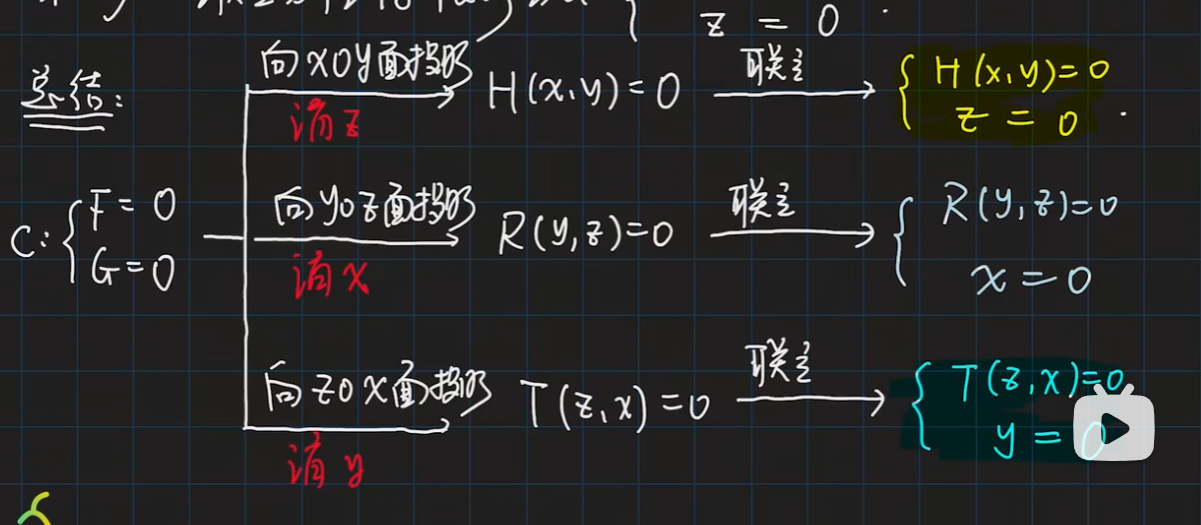 z = 0
总结:
向xOy面投影
消z
H(x,y)=0
联立
{ H(x,y)=0
z = 0
C: { F = 0
G = 0
向yOz面投影
消x
R(y,z)=0
联立
{ R(y,z)=0
x = 0
向zOx面投影
消y
T(z,x)=0
联立
{ T(z,x)=0
y = 0